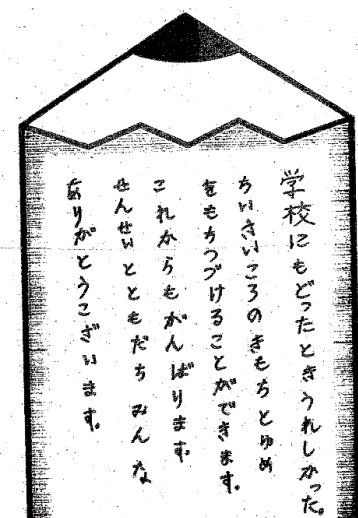 学校にもどったときうれしかった。
ちいさいころのきもちとゆめ
をもちつづけることができます。
これからもがんばります。
せんせいとともだちみんな
ありがとうございます。